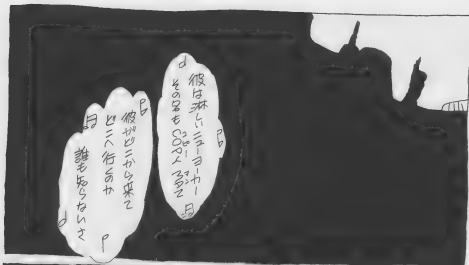 彼は淋しいニューヨーカー
その名もCOPY
彼がどこから来て
どこへ行くのか
誰も知らないさ